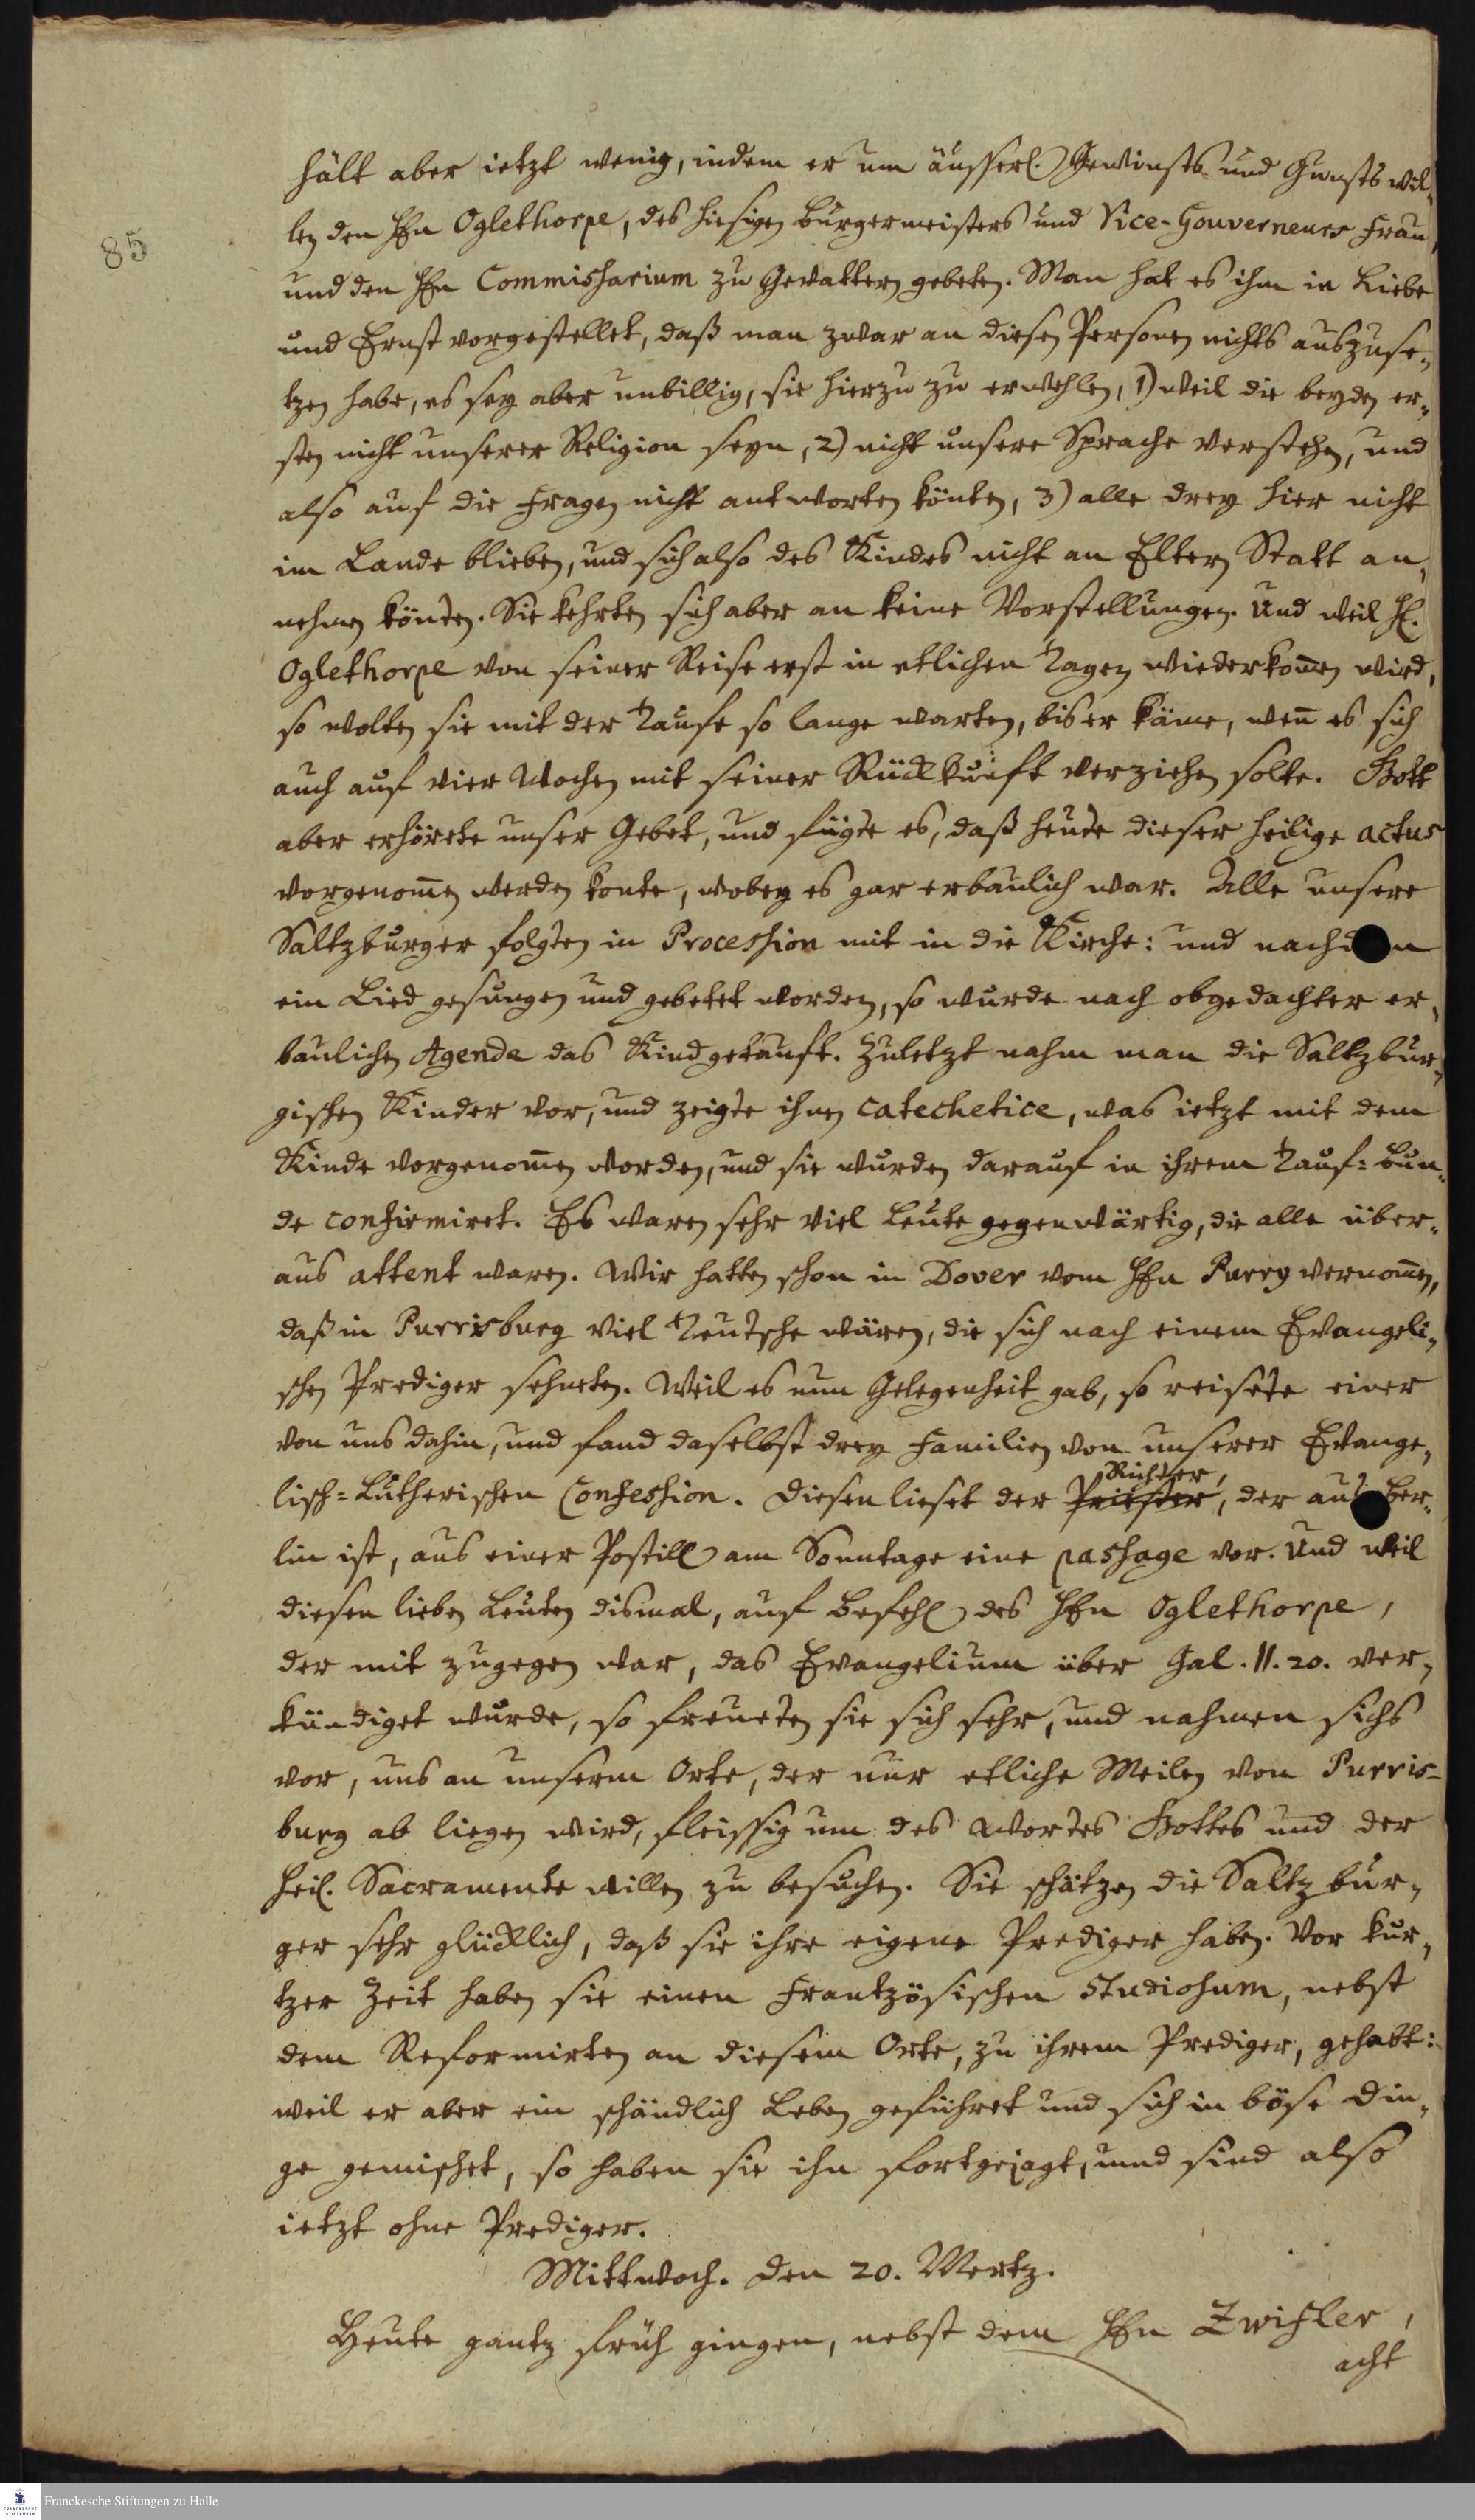 85
hält aber ietzt wenig, indem er um äusserl. Gewinsts und Gunsts wil-
len den Hrn Oglethorpe, des hiesigen Burgermeisters und Vice-Gouverneurs Frau,
und den Hrn Commissarium zu Gevattern gebeten. Man hat es ihm in Liebe
und Ernst vorgestellet, daß man zwar an diesen Personen nichts auszuse-
tzen habe, es sey aber unbillig, sie hierzu zu erwehlen, 1) weil die beyden er-
sten nicht unserer Religion seyn, 2) nicht unsere Sprache verstehen, und
also auf die Fragen nicht antworten könten, 3) alle drey hier nicht
im Lande blieben, und sich also des Kindes nicht an Eltern Statt an-
nehmen könten. Sie kehrten sich aber an keine Vorstellungen. Und weil H.
Oglethorpe von seiner Reise erst in etlichen Tagen wiederkom̄en wird,
so wolten sie mit der Taufe so lange warten, bis er käme, wen̄ es sich
auch auf vier Wochen mit seiner Rückkunft verziehen solte. Gott
aber erhörete unser Gebet, und fügte es, daß heute dieser heilige actus
vorgenom̄en werden konte, wobey es gar erbaulich war. Alle unsere
Saltzburger folgten in Procession mit in die Kirche: und nachdem
ein Lied gesungen und gebetet worden, so wurde nach obgedachter er-
baulichen Agende das Kind getauft. Zuletzt nahm man die Saltzbur-
gischen Kinder vor, und zeigte ihnen catechetice, was ietzt mit dem
Kinde vorgenom̄en worden, und sie wurden darauf in ihrem Tauf=Bun-
de confirmiret. Es waren sehr viel Leute gegenwärtig, die alle über-
aus attent waren. Wir hatten schon in Dover vom Hrn Purry vernom̄en,
daß in Purrisburg viel Teutsche wären, die sich nach einem Evangeli-
schen Prediger sehneten. Weil es nun Gelegenheit gab, so reisete einer
von uns dahin, und fand daselbst drey Familien von unserer Evange-
lisch=Lutherischen Confession. Diesen lieset der Priester Richter, der aus Ber-
lin ist, aus einer Postill am Sonntage eine passage vor. Und weil
diesen lieben Leuten dismal, auf Befehl des Hrn Oglethorpe,
der mit zugegen war, das Evangelium über Gal. II. 20. ver-
kündiget wurde, so freueten sie sich sehr, und nahmen sichs
vor, uns an unserm Orte, der nur etliche Meilen von Purris-
burg ab liegen wird, fleissig um des Wortes Gottes und der
heil. Sacramente willen zu besuchen. Sie schätzen die Saltzbur-
ger sehr glücklich, daß sie ihre eigene Prediger haben. Vor kur-
tzer Zeit haben sie einen Frantzösischen Studiosum, nebst
dem Reformirten an diesem Orte, zu ihrem Prediger, gehabt:
weil er aber ein schändlich Leben geführet und sich in böse Din-
ge gemischet, so haben sie ihn fortgejagt, und sind also
ietzt ohne Prediger.
Mittwoch. Den 20. Mertz.
Heute gantz früh gingen, nebst dem Hrn Zwifler,
acht
Franckesche Stiftungen zu Halle